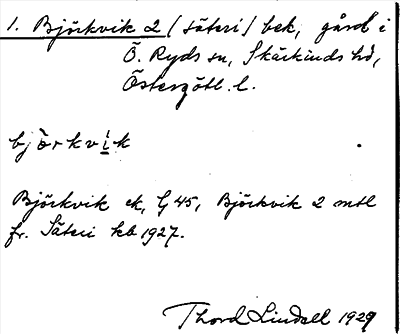 1. Björkvik 2 (säteri) bek, gård i
Ö. Ryds sn, Skärkinds hd,
Östergötl. l.
bjò̈rkvi̱k
Björkvik ek, G 45, Björkvik 2 mtl
fr. Säteri kb 1927.
Thord Lindell 1929